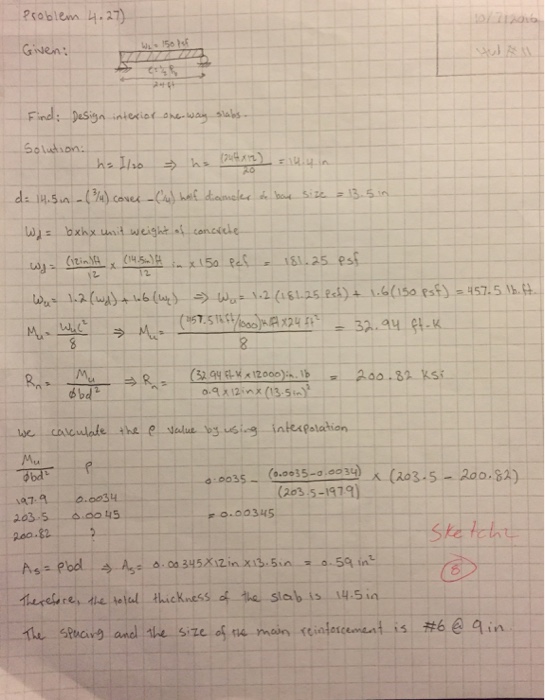 Problem 4.27)
Given:
WL = 150 psf
24 ft
Find: Design interior one-way slabs.
Solution:
h = l/20 ⇒ h = (24ft×12)/20 = 14.4 in
d = 14.5in - (3/4) cover - (1/4) half diameter of bar size = 13.5 in
Wd = bxhx unit weight of concrete
Wd = (12in)ft/12 × (14.5in)ft/12 × 150 pcf = 181.25 psf
Wu = 1.2(Wd) + 1.6(WL) ⇒ Wu = 1.2(181.25 psf) + 1.6(150 psf) = 457.5 lb.ft.
Mu = Wul²/8 ⇒ Mu = (457.5 lb ft/1000)k/ft × 24 ft²/8 = 32.94 ft.k
Rn = Mu/øbd² ⇒ Rn = (32.94 ft.k × 12000)in.lb/0.9 × 12in × (13.5in)² = 200.82 ksi
We calculate the ρ value by using interpolation
Mu/øbd² ρ
197.9 0.0034
203.5 0.0045
200.82 ?
0.0035 - (0.0035-0.0034)/(203.5-197.9) × (203.5 - 200.82)
= 0.00345
Sketch
8
As = ρbd ⇒ As = 0.00345×12in×13.5in = 0.59 in²
Therefore, the total thickness of the slab is 14.5 in
The spacing and the size of the main reinforcement is #6 @ 9 in